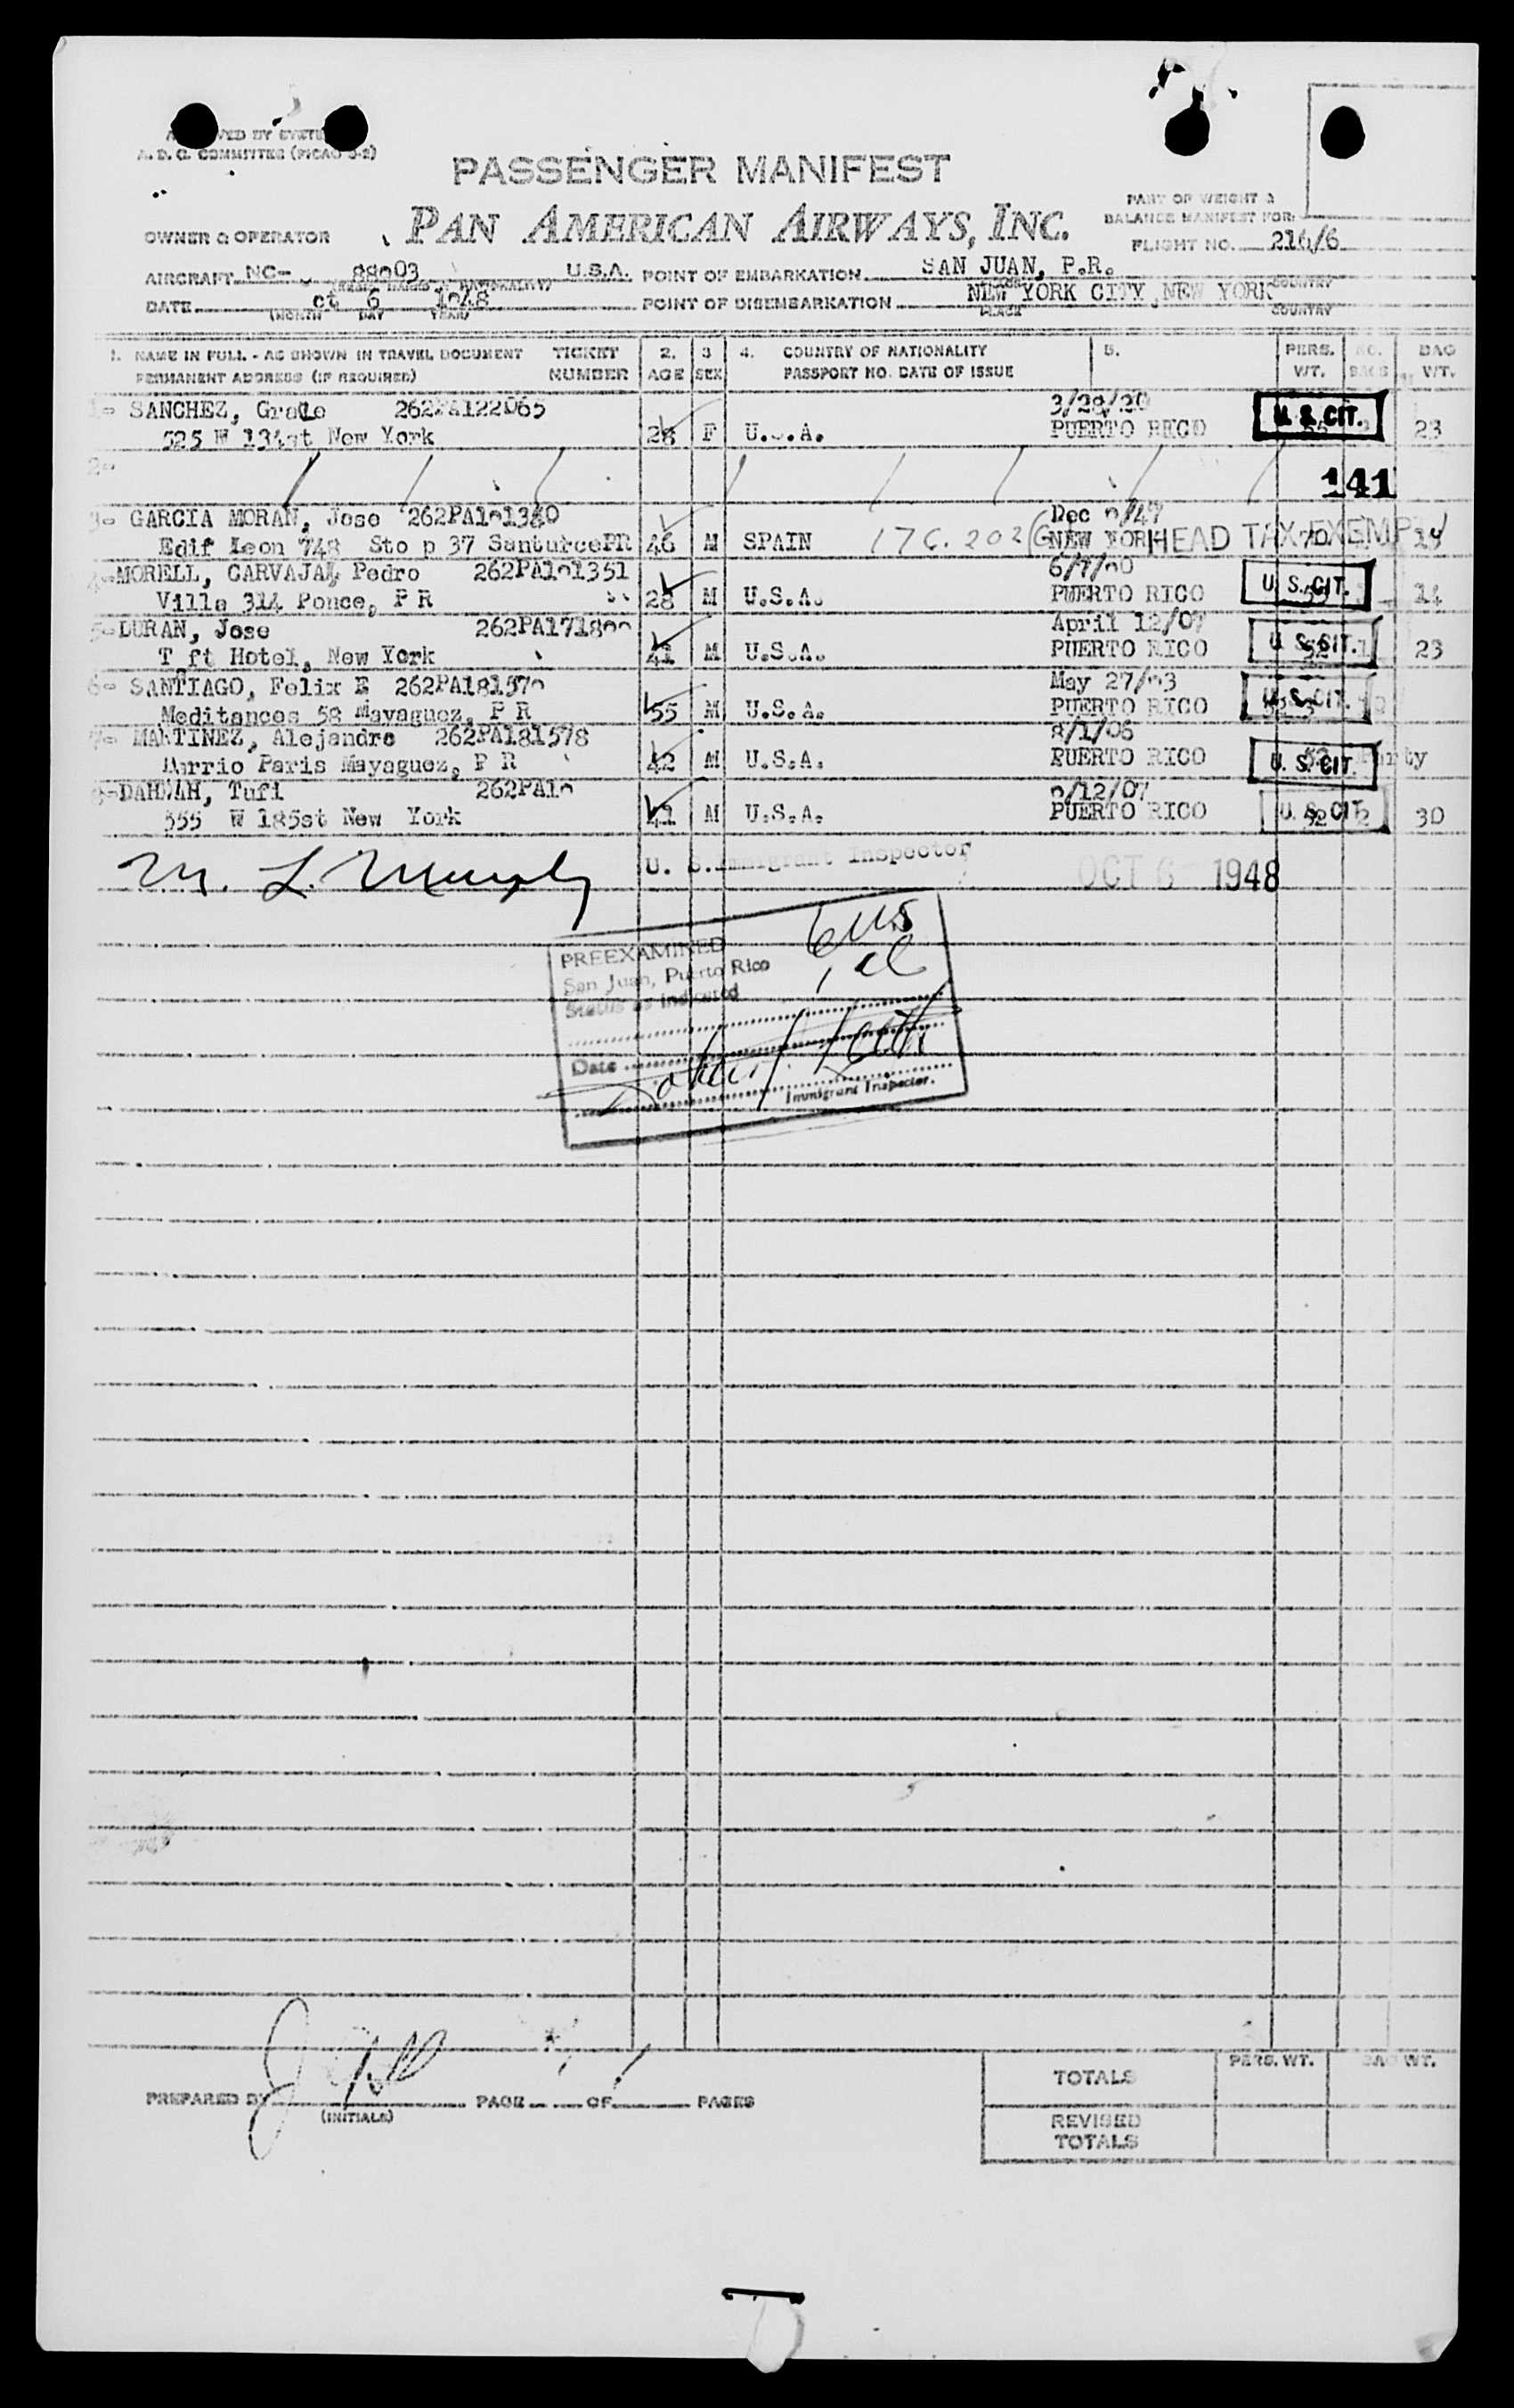 A. D. C. COMMITTEE (PICAO
PASSENGER MANIFEST
PART OF WEIGHT &
BALANCE MANIFEST FOR:
OWNER & OPERATOR PAN AMERICAN AIRWAYS, INC.
FLIGHT NO. 216/6
AIRCRAFT NC- 88903 U.S.A. POINT OF EMBARKATION SAN JUAN, P.R.
COUNTRY
DATE ct 6 1948 POINT OF DISEMBARKATION NEW YORK CITY, NEW YORK
(MONTH DAY YEAR) PLACE COUNTRY
1. NAME IN FULL - AS SHOWN IN TRAVEL DOCUMENT TICKET 2. 3 4. COUNTRY OF NATIONALITY 5. PERS. NO. BAG
PERMANENT ADDRESS (IF REQUIRED) NUMBER AGE SEX PASSPORT NO. DATE OF ISSUE WT. BAGS WT.
3/28/20
1- SANCHEZ, 262PA122065
525 W 134st New York 28 F U.S.A. PUERTO RICO U. S. CIT. 23
2-
141
3- GARCIA MORAN, Jose Dec
Edif Leon 748 Sto p 37 SanturcePR 46 M SPAIN 176.202 NEW YOR HEAD TAX EXEMPT
4- MORELL, CARVAJAL, Pedro
Villa 314 Ponce, P R 28 M U.S.A. PUERTO RICO U. S. CIT. 14
5- DURAN, Jose April 12/07
T ft Hotel, New York 41 M U.S.A. PUERTO RICO U. S. CIT. 23
6- SANTIAGO, Felix E May 27/
Meditances 58 Mayaguez, P R 55 M U.S.A. PUERTO RICO U. S. CIT.
7- MARTINEZ, Alejandro 262PA181578 8/1/06
Paris Mayaguez, P R 42 M U.S.A. PUERTO RICO U. S. CIT.
8- Tufi
555 W 185st New York 41 M U.S.A. PUERTO RICO U. S. CIT 2 30
M. L. Murphy U. S. Immigrant Inspector OCT 6 1948
PREEXAMINED
San Juan, Puerto Rico
Status as indicated
Date
Immigrant Inspector.
PREPARED BY PAGE OF PAGES
(INITIALS)
PERS. WT. BAG WT.
TOTALS
REVISED
TOTALS